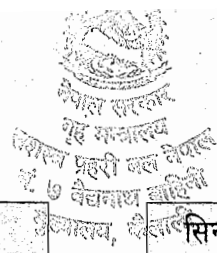 नेपाल सरकार
गृह मन्त्रालय
सशस्त्र प्रहरी बल नेपाल
नं. ७ वैद्यनाथ बाहिनी
सिन